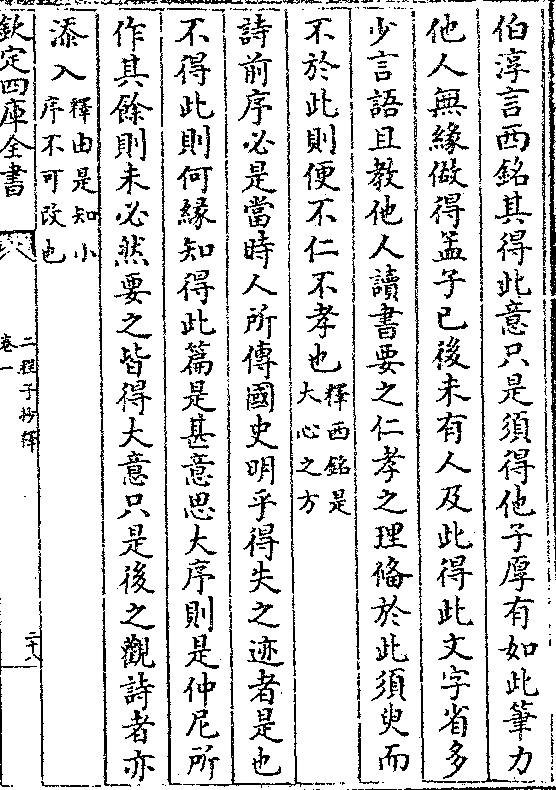 伯淳言西銘某得此意只是須得他子厚有如此筆力
他人無緣做得孟子已後未有人及此得此文字省多
少言語且教他人讀書要之仁孝之理備於此須臾而
不於此則便不仁不孝也釋西銘是大心之方
詩前序必是當時人所傳國史明乎得失之迹者是也
不得此則何緣知得此篇是甚意思大序則是仲尼所
作其餘則未必然要之皆得大意只是後之觀詩者亦
添入釋由是知小序不可改也
欽定四庫全書
卷一
二程子抄釋
二十八